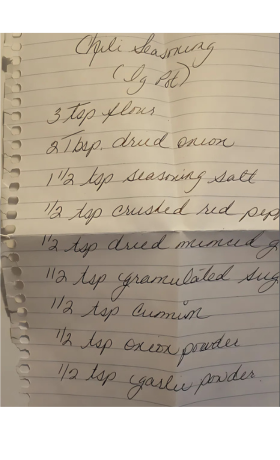 Chili Seasoning
(Lg Pot)
3 tsp flour
2 Tbsp. dried onion
1 1/2 tsp seasoning salt
1/2 tsp crushed red pep
1/2 tsp dried minced g
1/2 tsp granulated sug
1/2 tsp cumin
1/2 tsp onion powder
1/2 tsp garlic powder